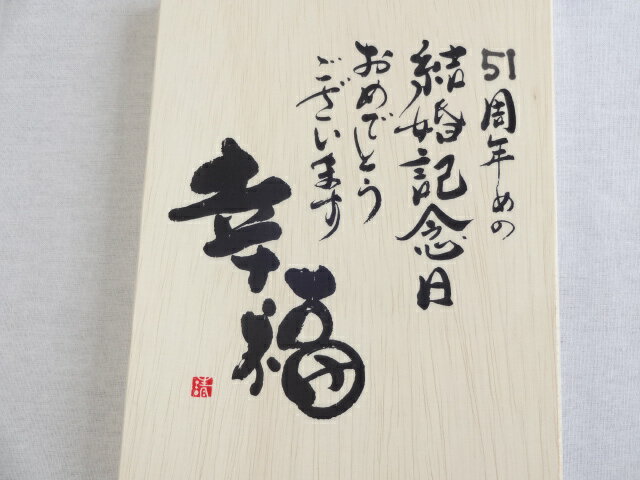 51周年めの
結婚記念日
おめでとう
ございます
幸福
清